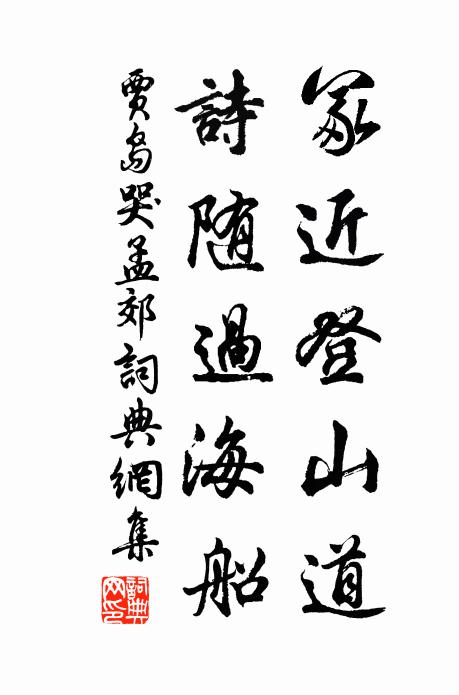 冢近登山道
詩随過海船
賈島哭孟郊詞典網集
詞典網印